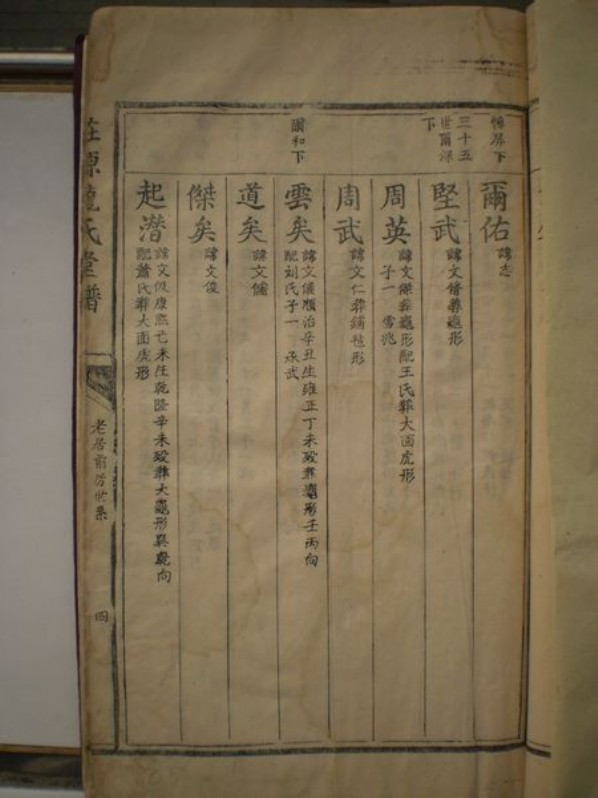 下
爾佑 諱志
三十五
世爾深
下
堅武 諱文脩葬龜形
周英 諱文傑葬龜形配王氏葬大面虎形
子一 雪兆
周武 諱文仁葬鋪毡形
爾和下
雲矣 諱文儀順治辛丑生雍正丁未歿葬龜形壬丙向
配刘氏子一 承武
道矣 諱文備
傑矣 諱文俊
起潛 諱文俶康熙亡未生乾隆辛未歿葬大龜形巽乾向
配蕭氏葬大面虎形
莊源 氏 譜
老居前房世系
四